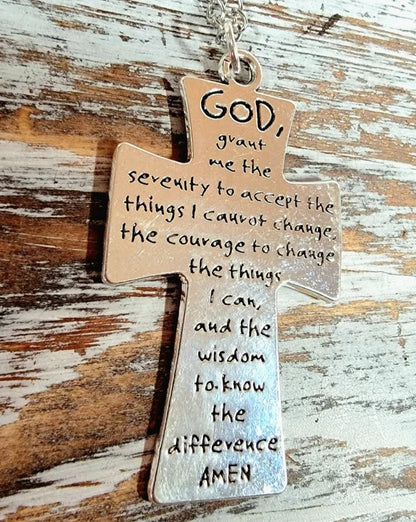 GOD,
grant
me the
serenity to accept the
things I cannot change,
the courage to change
the things
I can,
and the
wisdom
to know
the
difference
AMEN